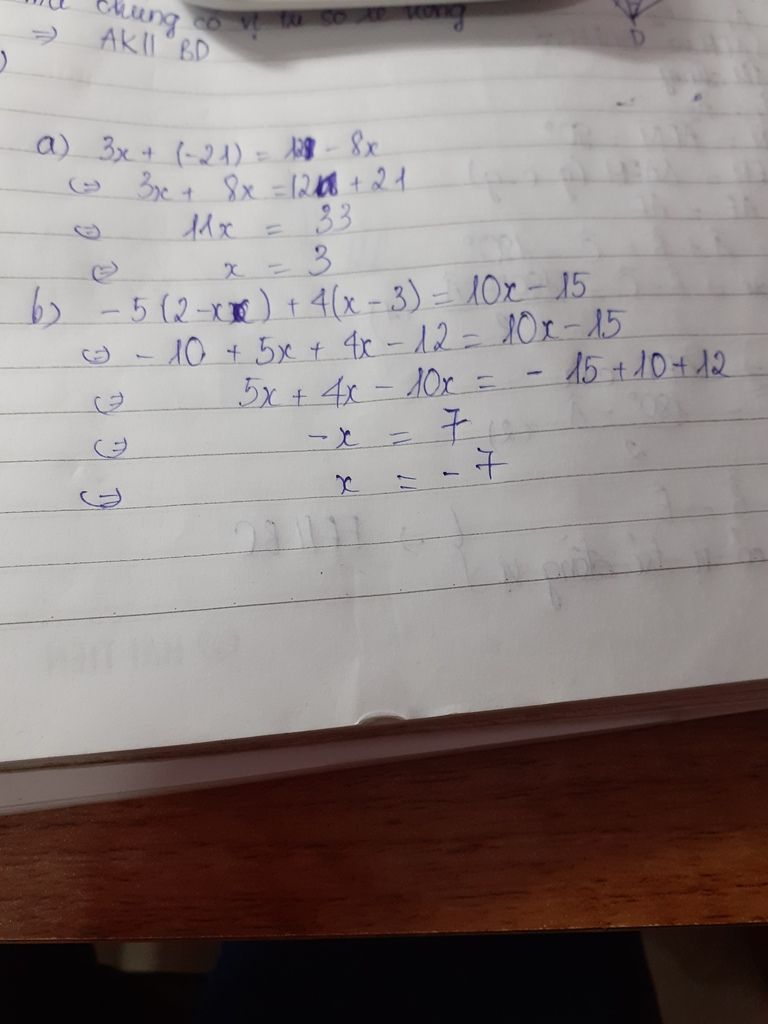 chung có vị trí so le trong
⇒ AK || BD
D
a) 3x + (-21) = 12 - 8x
⇔ 3x + 8x = 12 + 21
⇔ 11x = 33
⇔ x = 3
b) - 5 (2 - x) + 4(x - 3) = 10x - 15
⇔ - 10 + 5x + 4x - 12 = 10x - 15
⇔ 5x + 4x - 10x = - 15 + 10 + 12
⇔ -x = 7
⇔ x = - 7